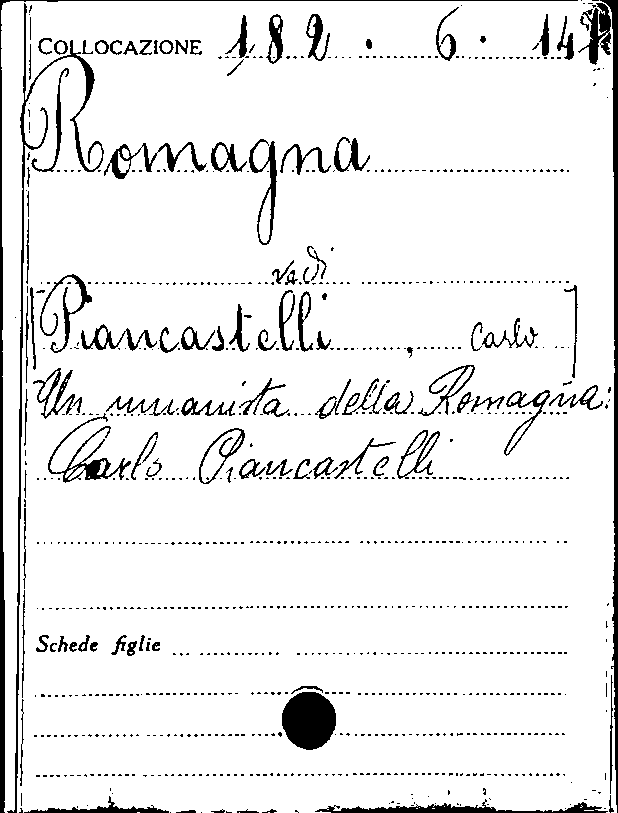 COLLOCAZIONE 182 . 6 . 141
Romagna
vedi
[Piancastelli, Carlo]
Un umanista della Romagna:
Carlo Piancastelli
Schede figlie